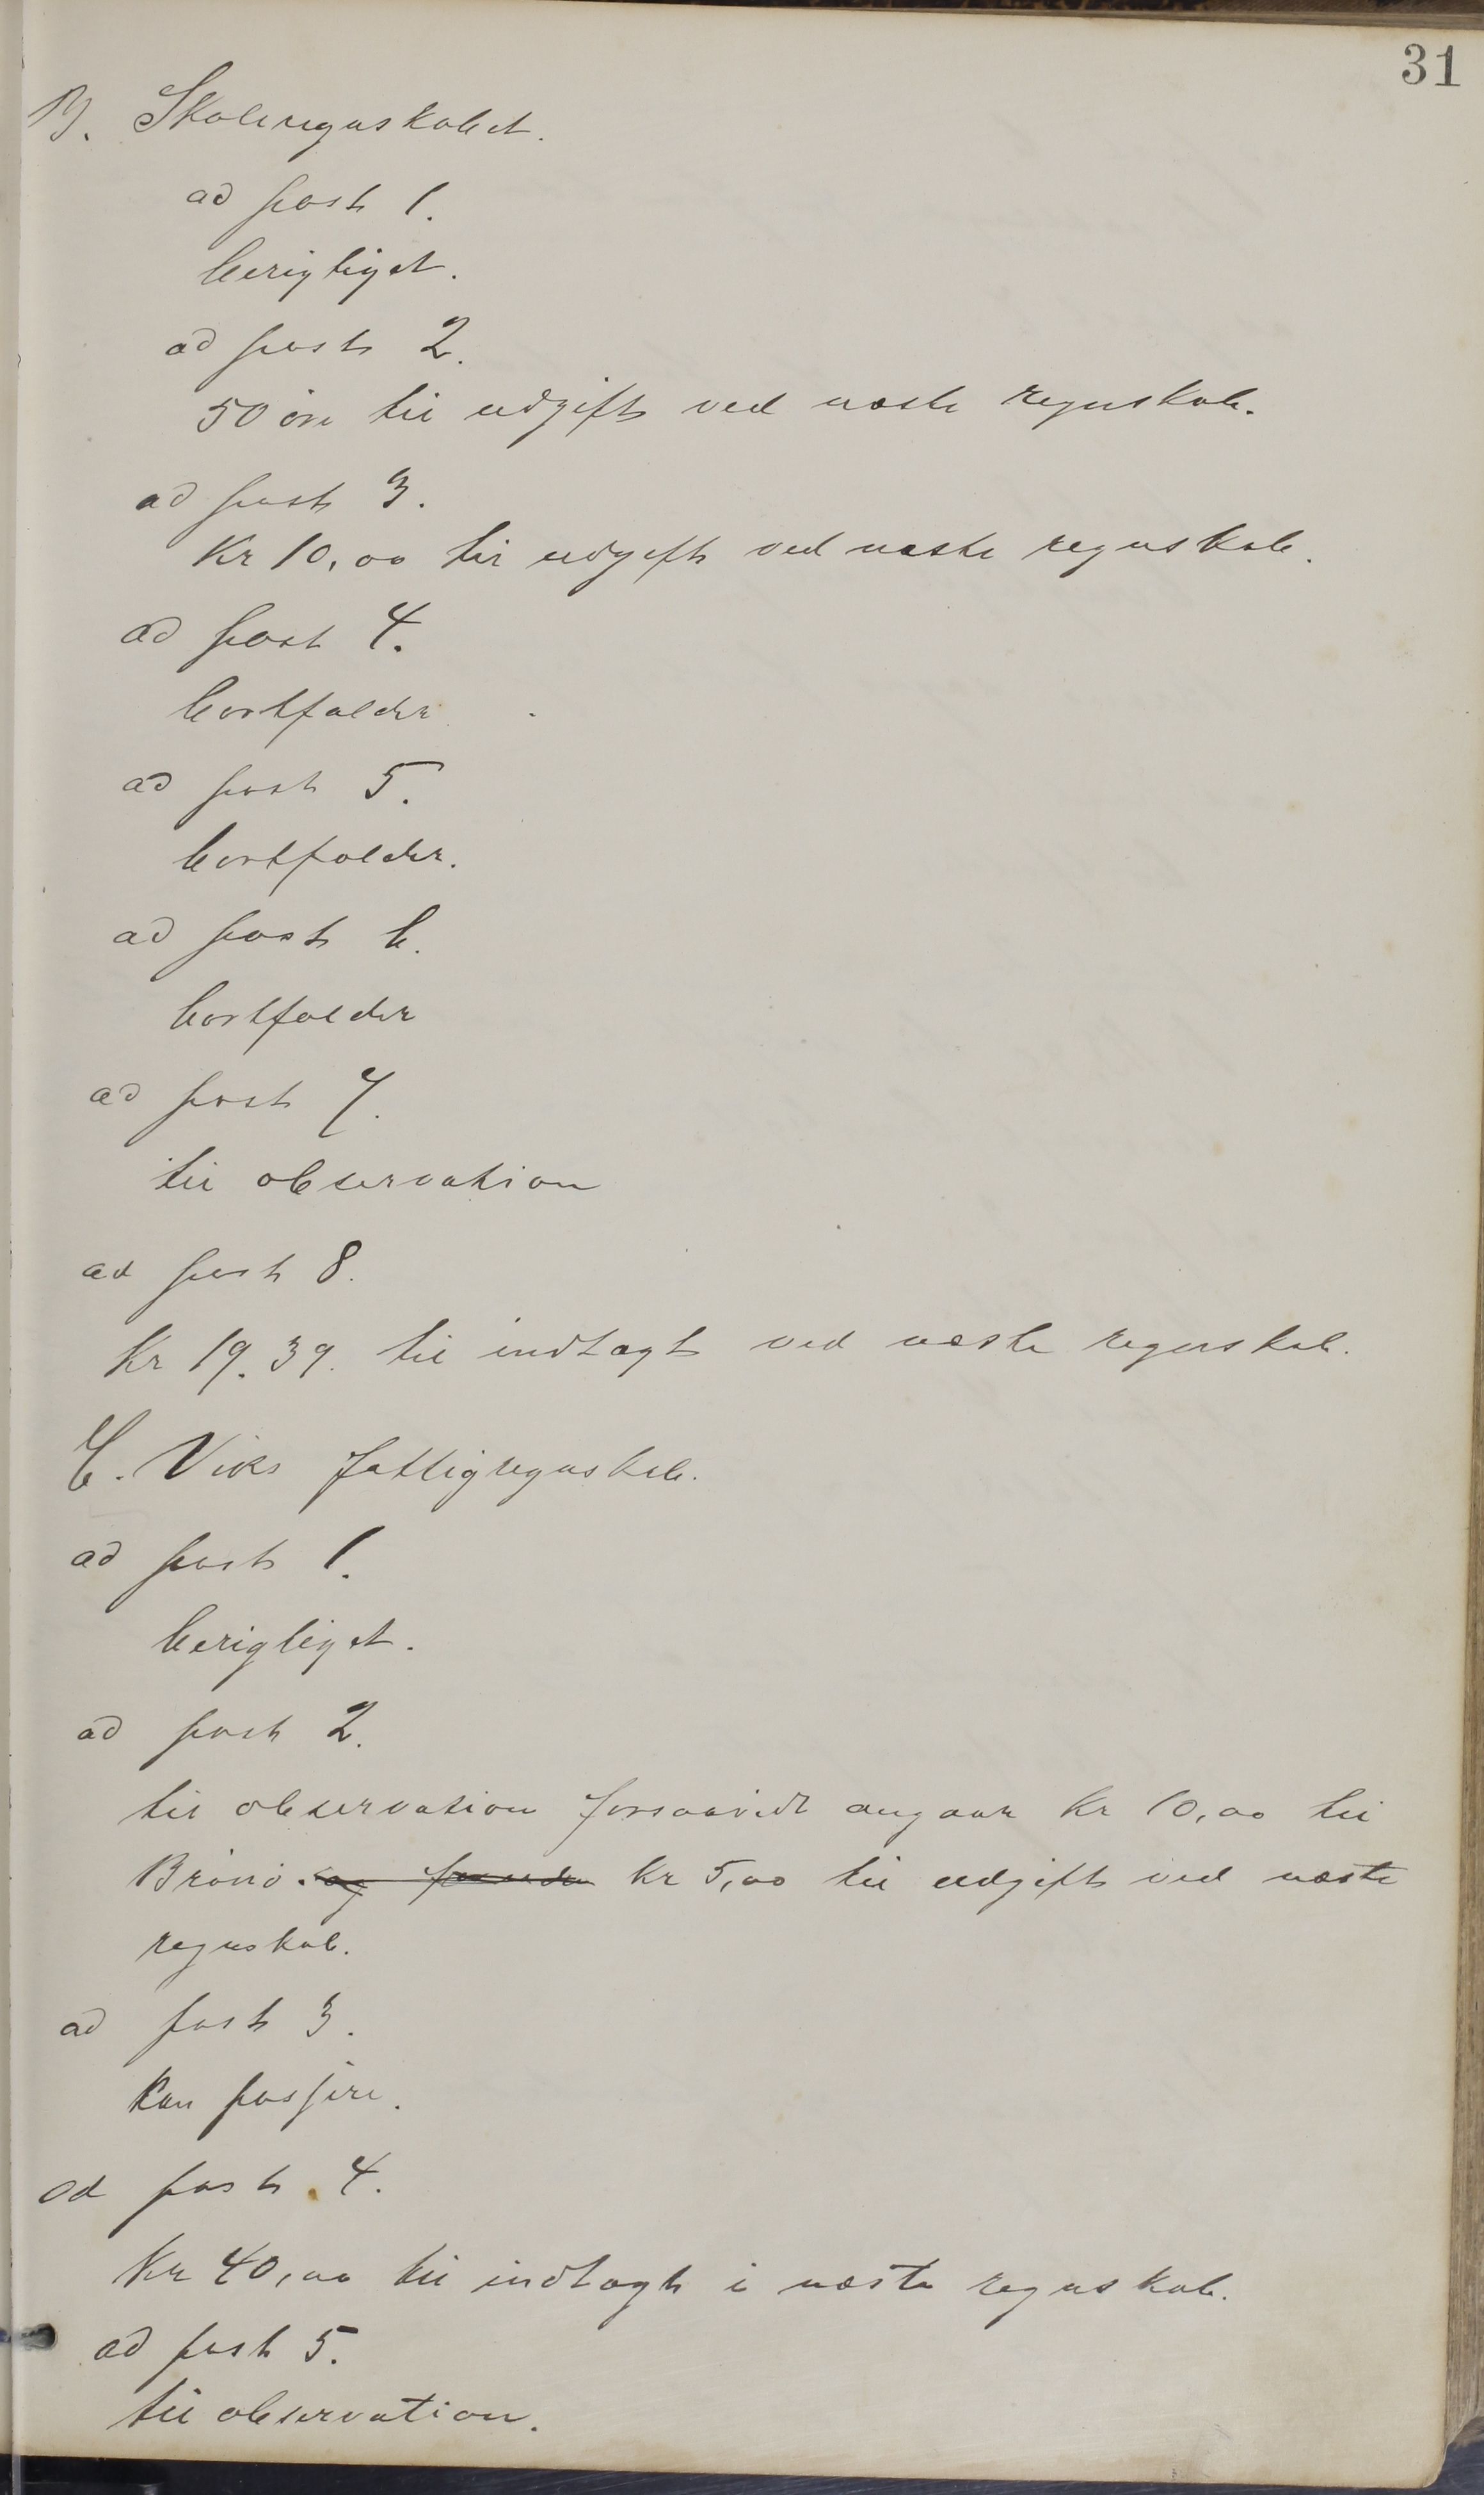 31
B. Skoleregnskabet.
ad post 1.
berigtiget.
ad post 2.
50 øre til udgift ved næste regnskab.
ad post 3.
Kr 10,00 til udgift ved næste regnskab.
ad post 4.
bortfalder
ad post 5.
bortfalder.
ad post 6.
bortfalder
ad post 7.
til observation
ad post 8.
Kr 19.39. til indtægt ved næste regnskab.
C. Viks fattigregnskab.
ad post 1.
berigtiget.
ad post 2.
til observation forsaavidt angaar Kr 10,00 til
Brönö. og Kr 5,00 til udgift ved næste
regnskab.
ad post 3.
Kan passere.
ad post 4.
Kr 40,00 til indtægt i næste regnskab.
ad post 5.
til observation.